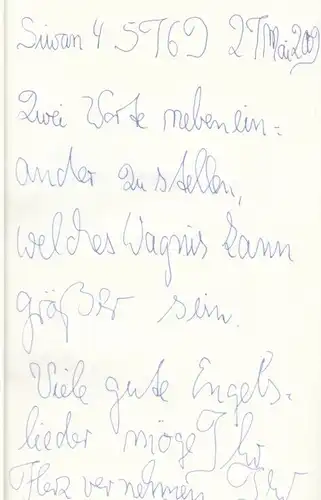 Siwan 4 5769 27 Mai 2009
Zwei Worte nebenein=
ander zu stellen,
welches Wagnis kann
größer sein.
Viele gute Engels=
lieder möge Ihr
Herz vernehmen